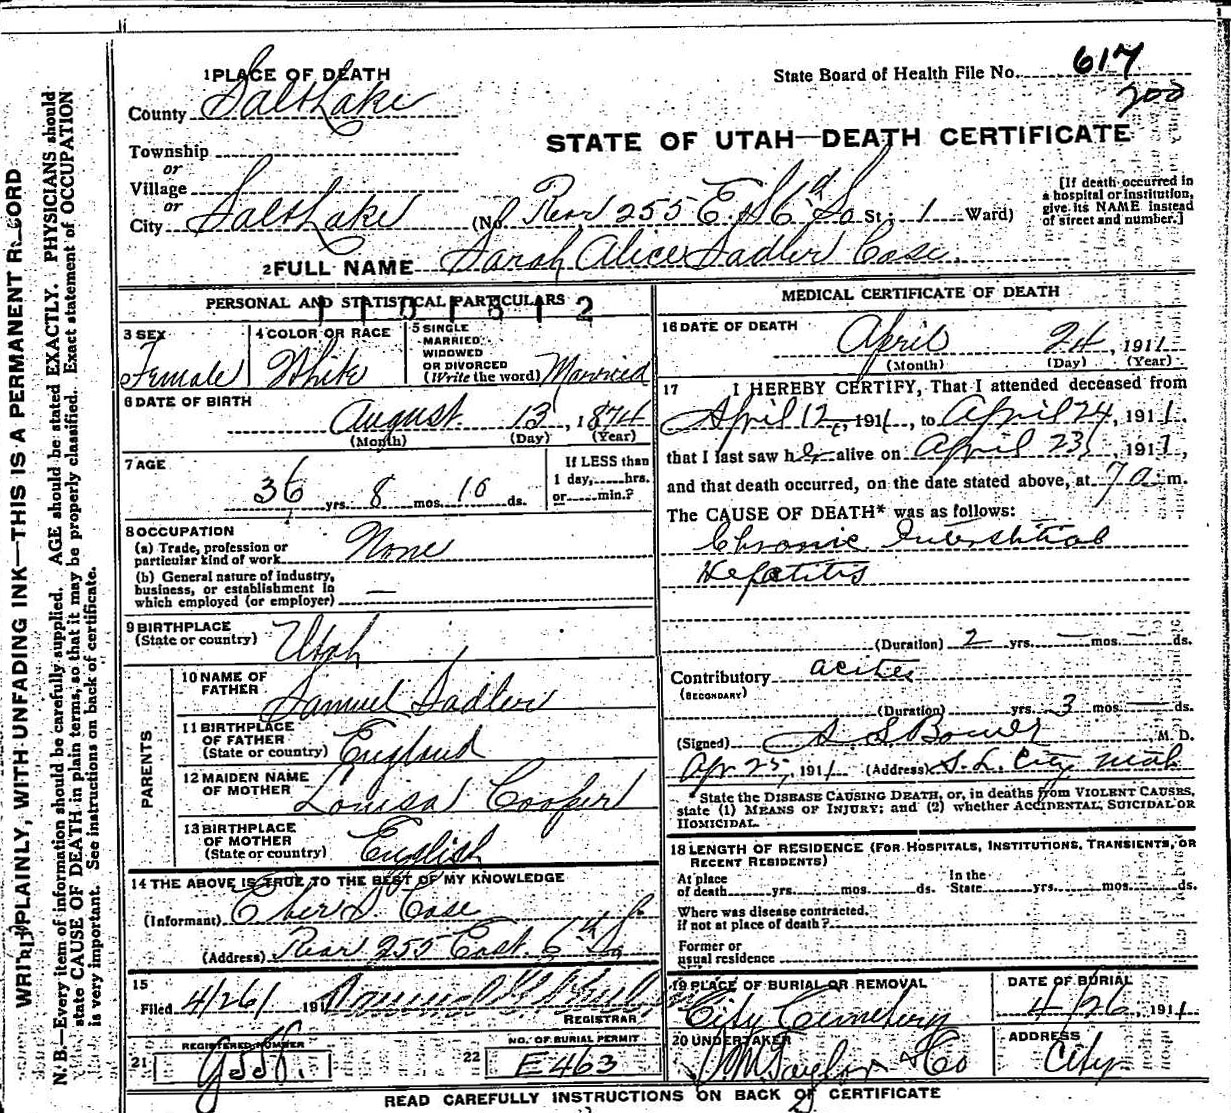 1 PLACE OF DEATH
State Board of Health File No. 617
200
County Salt Lake
STATE OF UTAH—DEATH CERTIFICATE
Township
or
Village
or
City Salt Lake (No. Rear 255 E. 6th So St.; 1 Ward)
[If death occurred in a hospital or institution, give its NAME instead of street and number.]
2 FULL NAME Sarah Alice Sadler Case.
PERSONAL AND STATISTICAL PARTICULARS
3 SEX Female
4 COLOR OR RACE White
5 SINGLE MARRIED WIDOWED OR DIVORCED (Write the word) Married
6 DATE OF BIRTH
August 13, 1874
(Month) (Day) (Year)
7 AGE
36 yrs. 8 mos. 10 ds.
If LESS than 1 day, hrs. or min.?
8 OCCUPATION
(a) Trade, profession or particular kind of work None
(b) General nature of industry, business, or establishment in which employed (or employer) —
9 BIRTHPLACE
(State or country) Utah
PARENTS
10 NAME OF FATHER Samuel Sadler
11 BIRTHPLACE OF FATHER (State or country) England
12 MAIDEN NAME OF MOTHER Louisa Cooper
13 BIRTHPLACE OF MOTHER (State or country) English
14 THE ABOVE IS TRUE TO THE BEST OF MY KNOWLEDGE
(Informant) Eber S. Case
(Address) Rear 255 East 6th So
15
Filed 4/26/ 191
REGISTRAR
REGISTERED NUMBER
21
22
NO. OF BURIAL PERMIT
E 463
MEDICAL CERTIFICATE OF DEATH
16 DATE OF DEATH
April 24, 1911
(Month) (Day) (Year)
17 I HEREBY CERTIFY, That I attended deceased from
April 12, 1911, to April 24, 1911.
that I last saw her alive on April 23, 1911,
and that death occurred, on the date stated above, at 7 a m.
The CAUSE OF DEATH* was as follows:
Chronic Interstitial
Hepatitis
(Duration) 2 yrs. — mos. — ds.
Contributory acites
(SECONDARY)
(Duration) yrs. 3 mos. — ds.
(Signed) S. S. Bower M. D.
Apr 25, 1911 (Address) S. L. City Utah
State the DISEASE CAUSING DEATH, or, in deaths from VIOLENT CAUSES,
state (1) MEANS OF INJURY; and (2) whether ACCIDENTAL, SUICIDAL OR
HOMICIDAL.
18 LENGTH OF RESIDENCE (FOR HOSPITALS, INSTITUTIONS, TRANSIENTS, OR
RECENT RESIDENTS)
At place of death yrs. mos. ds. In the State yrs. mos. ds.
Where was disease contracted.
if not at place of death?
Former or
usual residence
19 PLACE OF BURIAL OR REMOVAL
City Cemetery
DATE OF BURIAL
4/26, 1911
20 UNDERTAKER
Taylor & Co
ADDRESS
City
READ CAREFULLY INSTRUCTIONS ON BACK OF CERTIFICATE
WRITE PLAINLY, WITH UNFADING INK—THIS IS A PERMANENT RECORD
N. B.—Every item of information should be carefully supplied. AGE should be stated EXACTLY. PHYSICIANS should
state CAUSE OF DEATH in plain terms, so that it may be properly classified. Exact statement of OCCUPATION
is very important. See instructions on back of certificate.